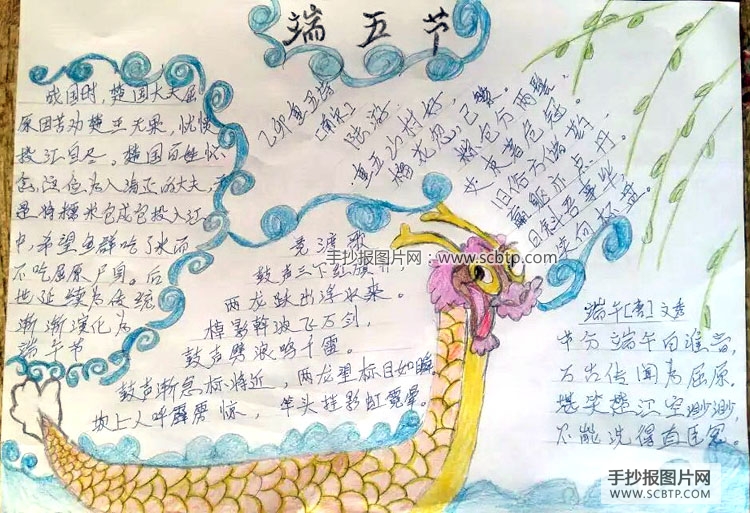 端五节
战国时,楚国大夫屈
原因苦劝楚王无果,忧愤
投江自尽。楚国百姓怀
是将糯米包成包投入江
中,希望鱼群吃了米而
不吃屈原尸身。后
世延续为传统
渐渐演化为
端午节
乙卯重五诗
[南宋]
陆游
重五山村好,
榴花忽已繁。
粽包分两髻,
艾束著危冠。
旧俗方储药,
羸躯亦点丹。
日斜吾事毕,
一笑向杯盘。
竞渡歌
鼓声三下红旗开,
两龙跃出浮水来。
棹影斡波飞万剑,
鼓声劈浪鸣千雷。
鼓声渐急标将近,两龙望标目如瞬。
坡上人呼霹雳惊,竿头挂彩虹霓晕。
端午[唐]文秀
节分端午自谁言,
万古传闻为屈原。
堪笑楚江空渺渺,
不能洗得直臣冤。
手抄报图片网:www.scbtp.com
手抄报图片网
WWW.SCBTP.COM